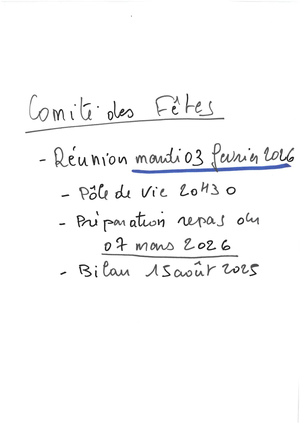 Comité des Fêtes
- Réunion mardi 03 février 2026
- Pôle de Vie 20H30
- Préparation repas du
07 mars 2026
- Bilan 15 août 2025